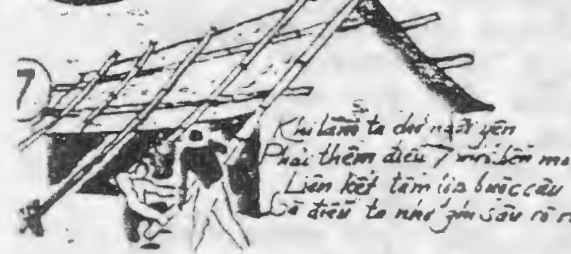 7
Khi làm ta chớ ngồi yên
Phải thêm điều 7 mới bền
Liên kết tầm bước cầu
Là điều ta nhớ ghi sâu